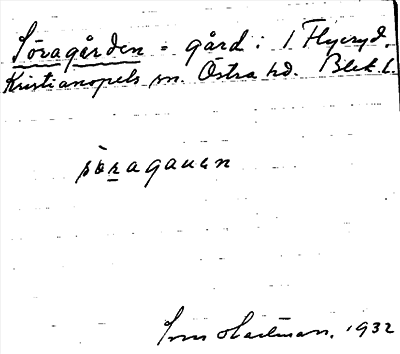 Söragården = gård i 1 Flyeryd,
Kristianopels sn. Östra hd. Blek. l.
söragauen
Hartman, 1932